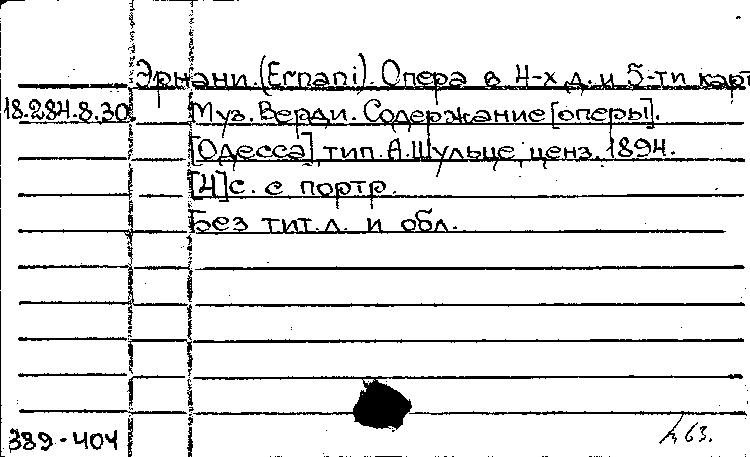 Эрнани. (Ernani). Опера в 4-х д. и 5-ти карт
18.284.8.30. Муз. Верди. Содержание [оперы].
[Одесса], тип. А. Шульце, ценз. 1894.
[4] с. с портр.
Без тит. л. и обл.
389-404
63.